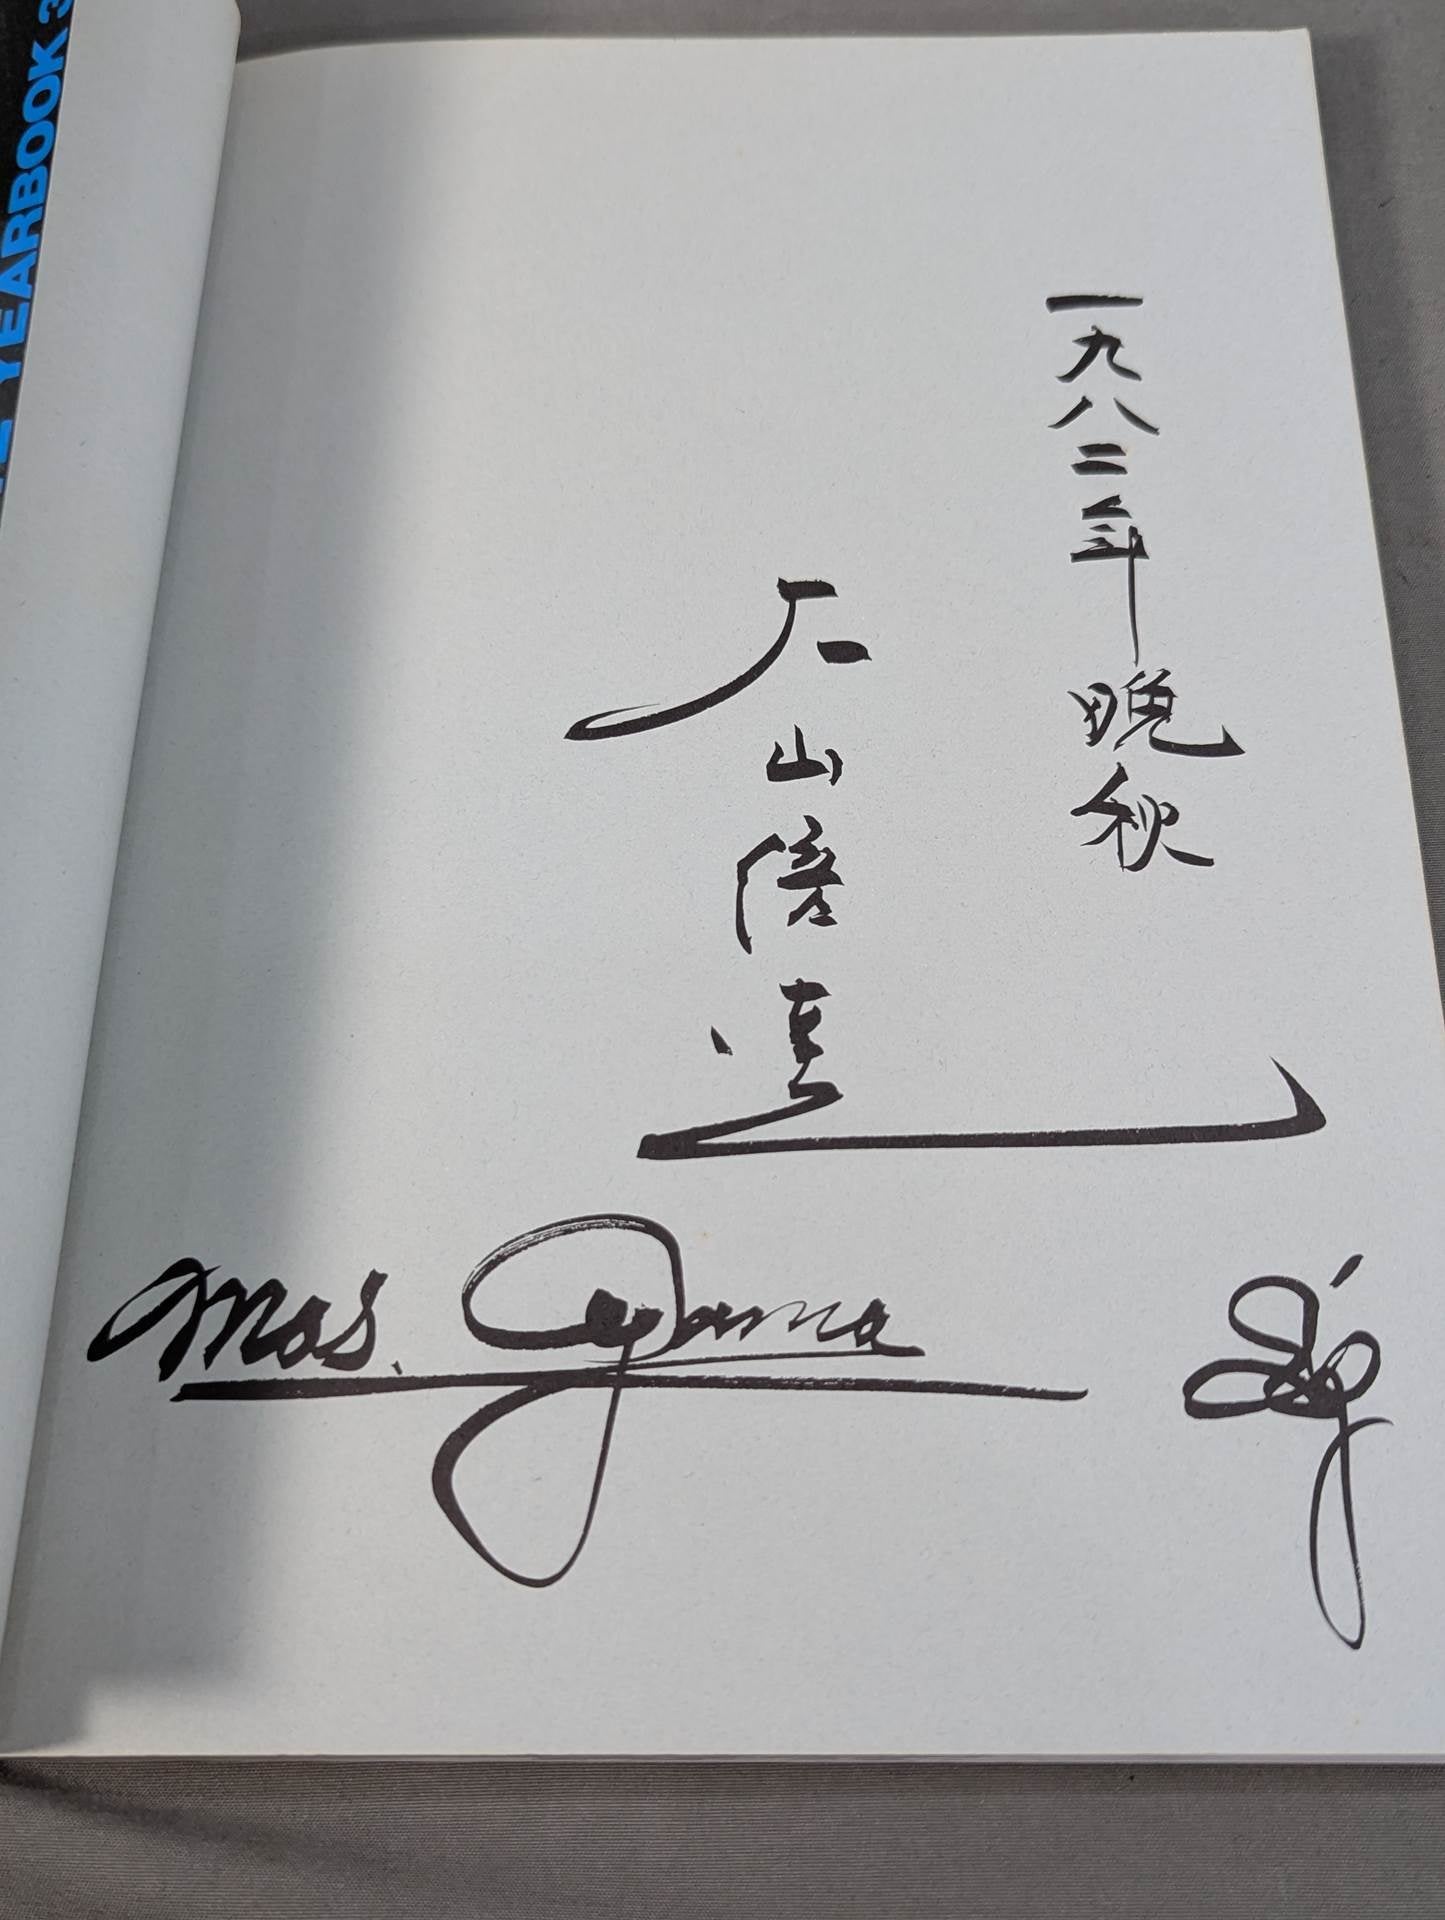 YEARBOOK 3
一九八二年晩秋
大山倍達
Mas. Oyama